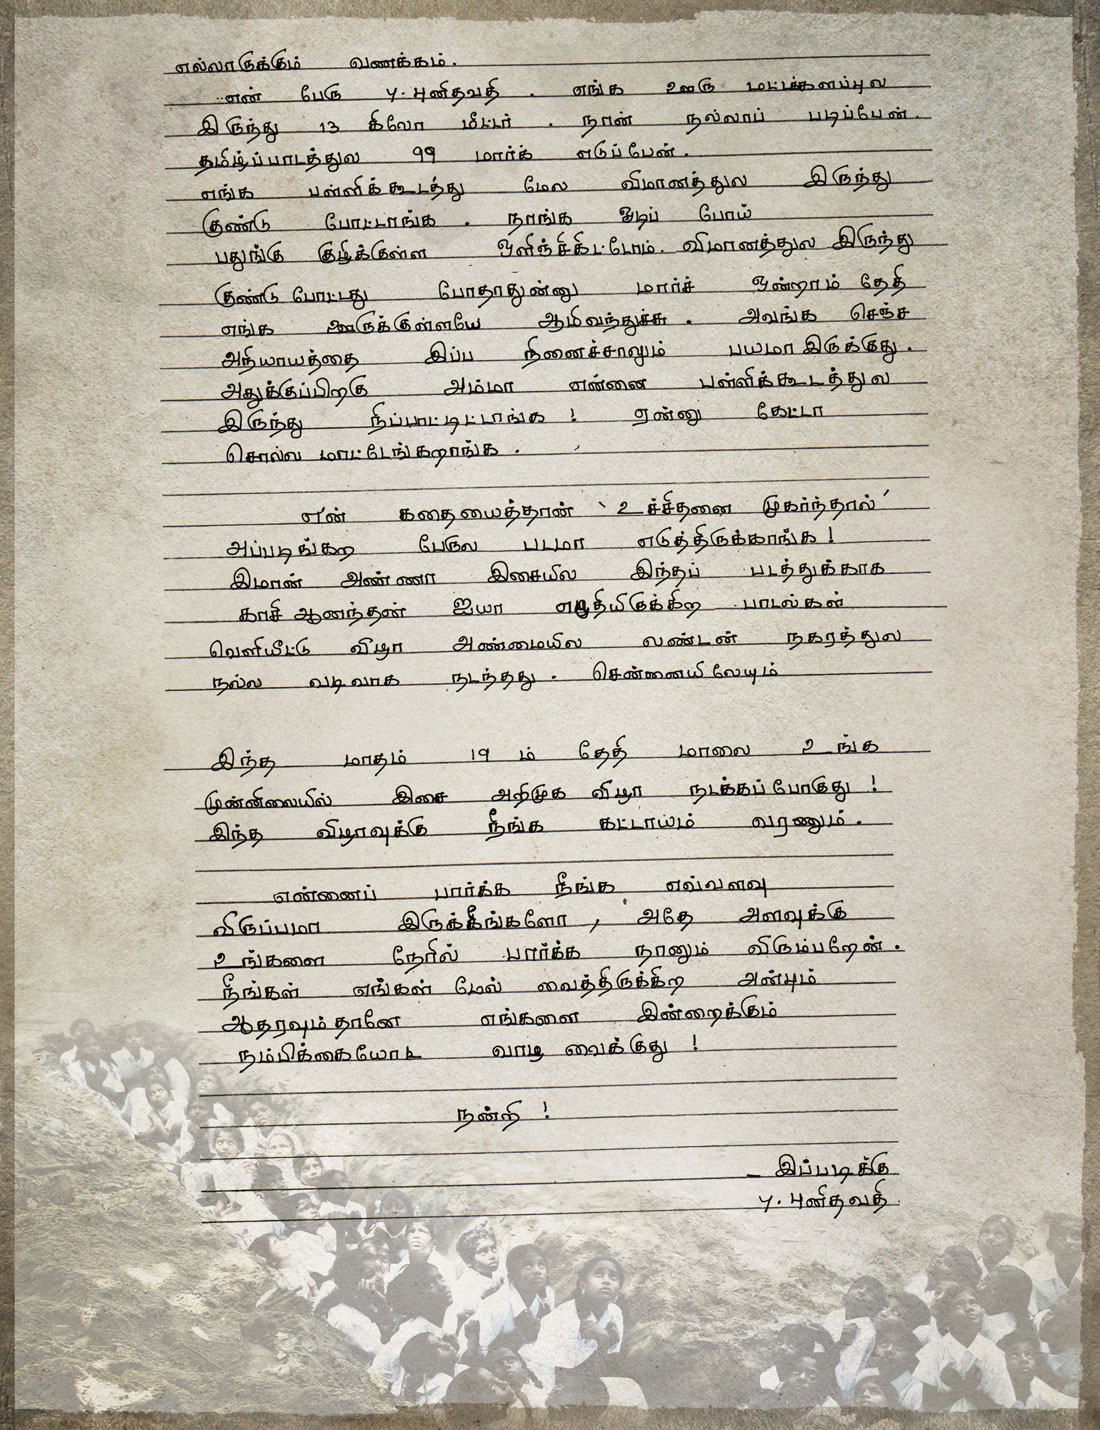 எல்லாருக்கும் வணக்கம்.
என் பேரு பு. புனிதவதி. எங்க ஊரு மட்டக்களப்புல
இருந்து 13 கிலோ மீட்டர். நான் நல்லாப் படிப்பேன்.
தமிழ்ப்பாடத்துல 99 மார்க் எடுப்பேன்.
எங்க பள்ளிக்கூடத்து மேல விமானத்துல இருந்து
குண்டு போட்டாங்க. நாங்க ஓடிப் போய்
பதுங்கு குழிக்குள்ள ஒளிஞ்சிகிட்டோம். விமானத்துல இருந்து
குண்டு போட்டது போதாதுன்னு மார்ச் ஒன்றாம் தேதி
எங்க ஊருக்குள்ளயே ஆமிவந்துச்சு. அவங்க செஞ்ச
அநியாயத்தை இப்ப நினைச்சாலும் பயமா இருக்குது.
அதுக்குப்பிறகு அம்மா என்னை பள்ளிக்கூடத்துல
இருந்து நிப்பாட்டிட்டாங்க! ஏன்னு கேட்டா
சொல்ல மாட்டேங்கறாங்க.
என் கதையைத்தான் 'உச்சிதனை முகர்ந்தால்'
அப்படிங்கற பேருல படமா எடுத்திருக்காங்க!
இமான் அண்ணா இசையில இந்தப் படத்துக்காக
காசி ஆனந்தன் ஐயா எழுதியிருக்கிற பாடல்கள்
வெளியீட்டு விழா அண்மையில லண்டன் நகரத்துல
நல்ல வடிவாக நடந்தது. சென்னையிலேயும்
இந்த மாதம் 19 ம் தேதி மாலை உங்க
முன்னிலையில் இசை அறிமுக விழா நடக்கப்போகுது!
இந்த விழாவுக்கு நீங்க கட்டாயம் வரணும்.
என்னைப் பார்க்க நீங்க எவ்வளவு
விருப்பமா இருக்கீங்களோ, அதே அளவுக்கு
உங்களை நேரில் பார்க்க நானும் விரும்பறேன்.
நீங்கள் எங்கள் மேல் வைத்திருக்கிற அன்பும்
ஆதரவும்தானே எங்களை இன்றைக்கும்
நம்பிக்கையோட வாழ வைக்குது!
நன்றி!
- இப்படிக்கு
பு. புனிதவதி